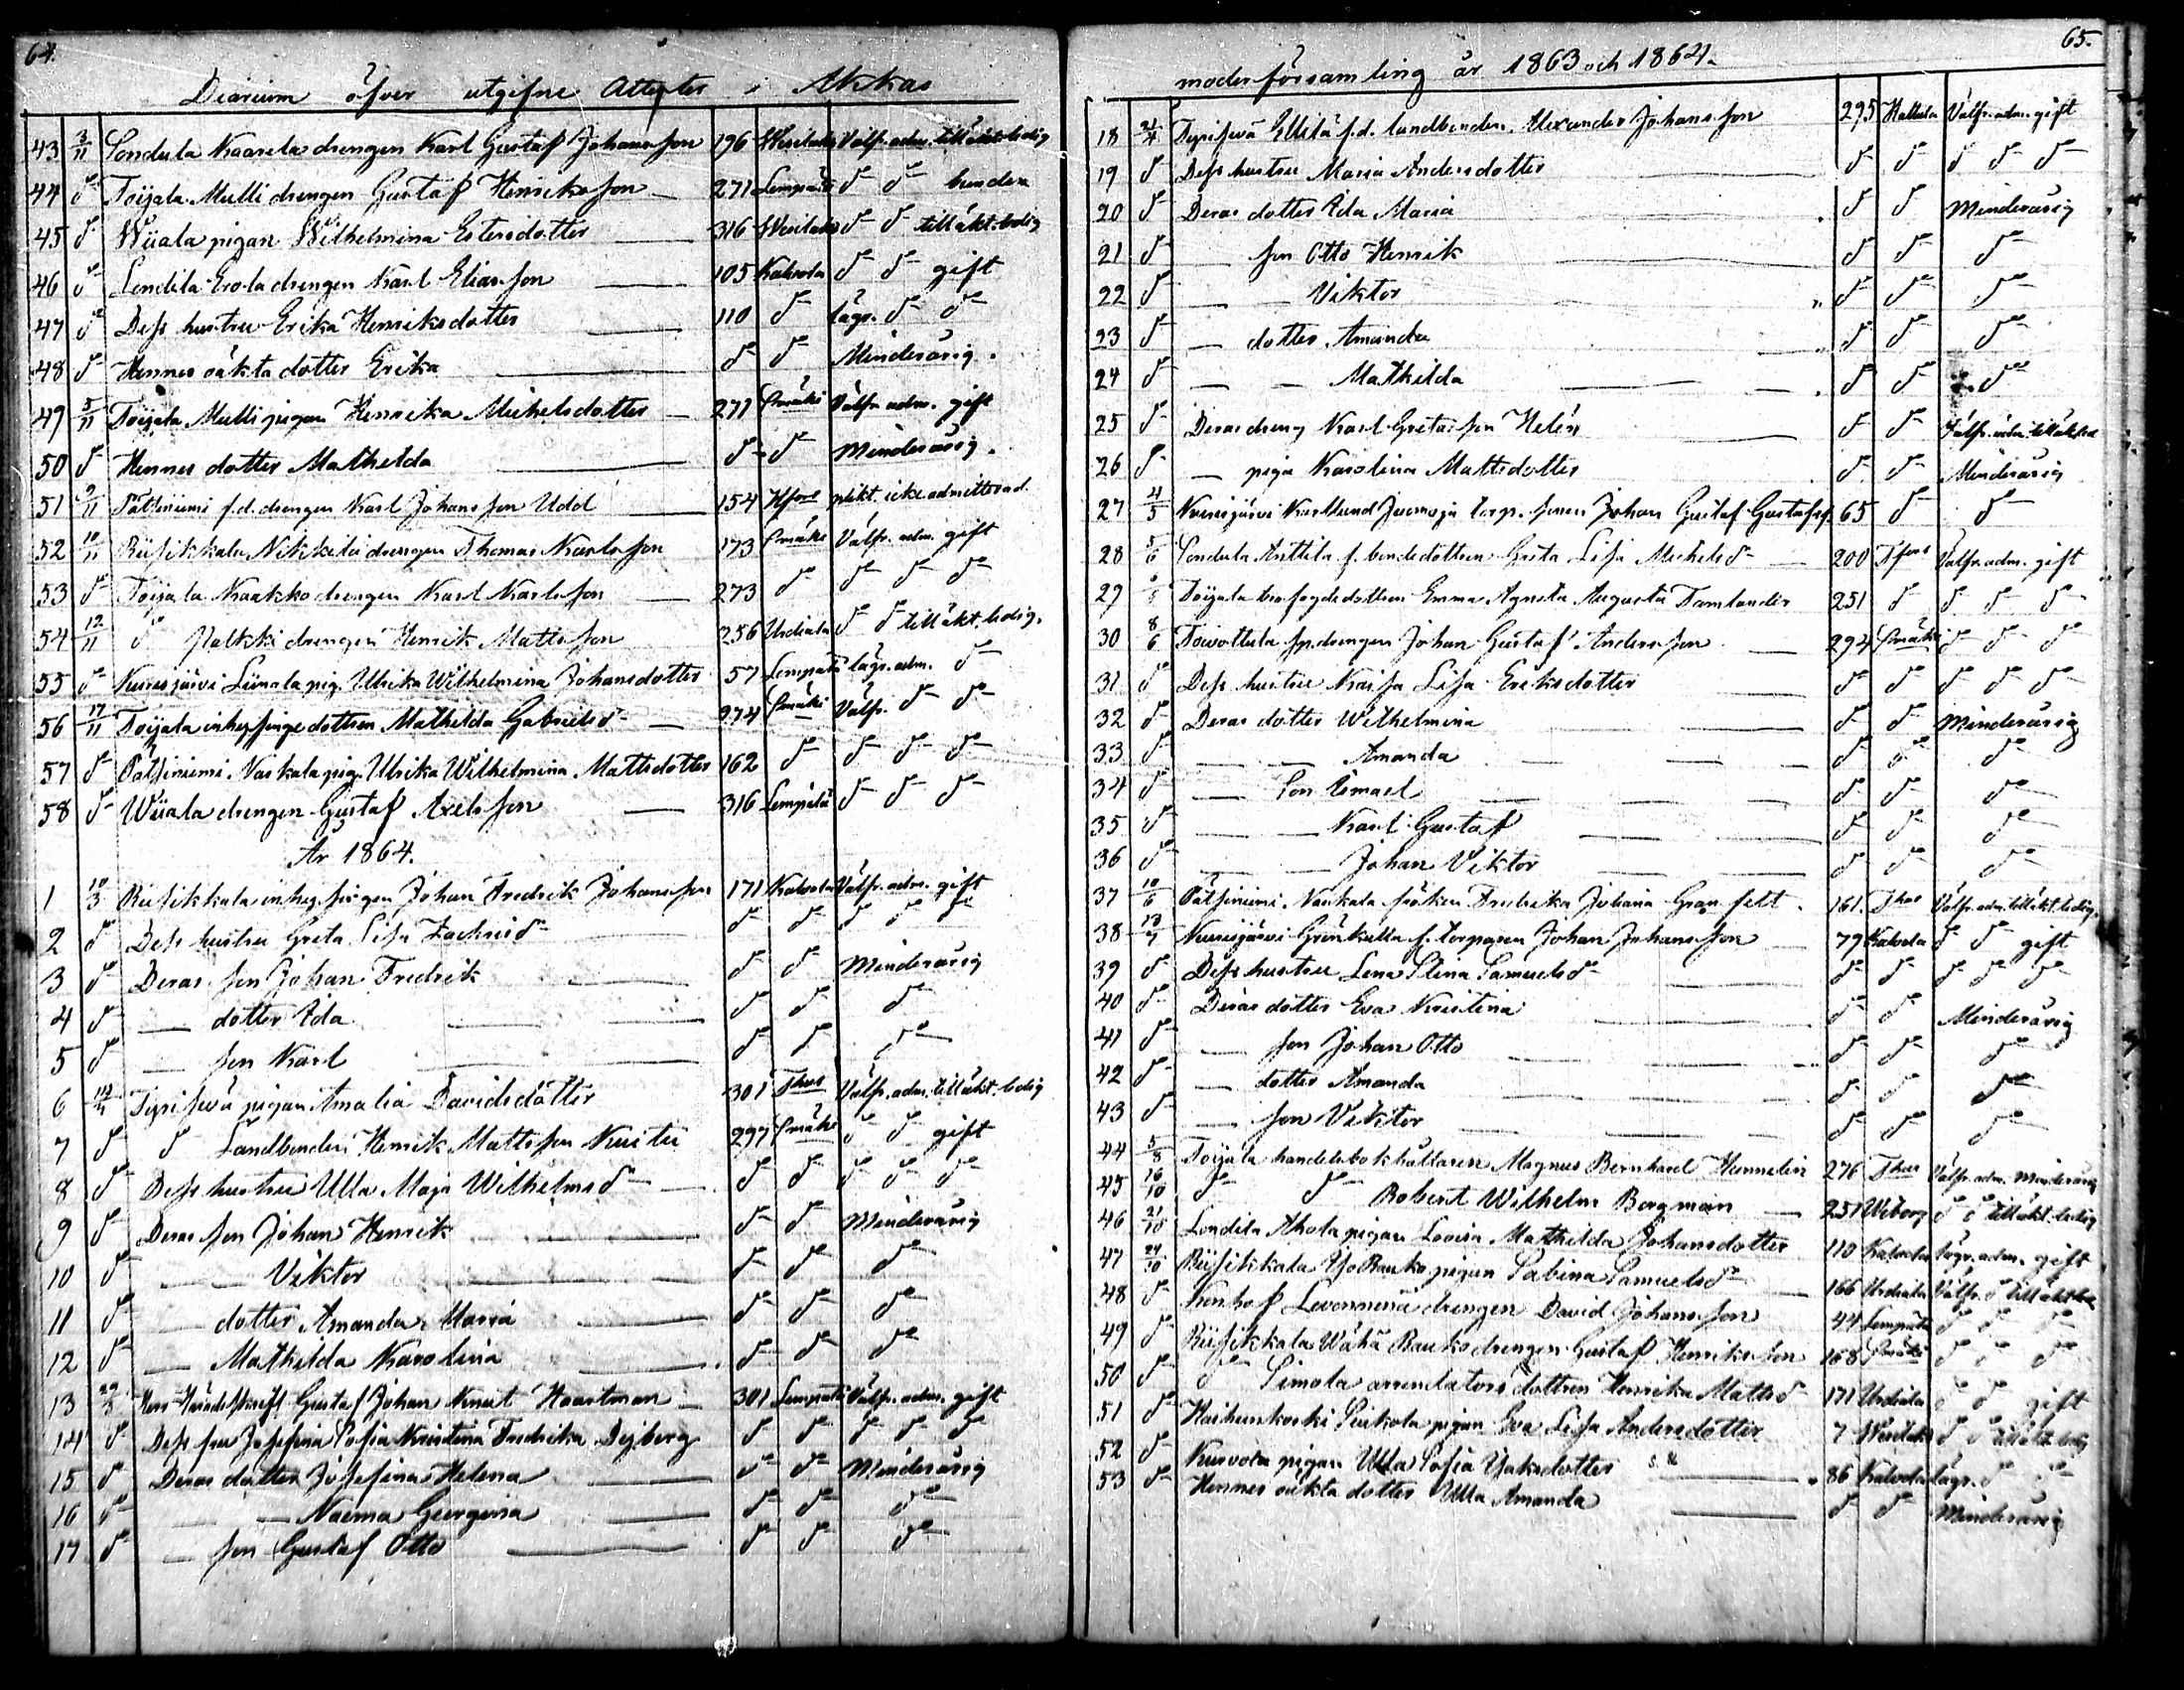 64.
Diarium öfver utgifne Attester i Akkas
43 3/11 Sondula Kaarela drengen Karl Gustaf Johansson 196 Wesilaks Välfr. adm. till äkt. ledig
44 d:o Toijala Mulli drengen Gustaf Henriksson 271 Lempälä d:o d:o bunden
45 d:o Wiiala pigan Wilhelmina Estersdotter 316 Wesilaks d:o d:o till äkt. ledig
46 d:o Londila Erola drengen Karl Eliasson 105 Kalvola d:o d:o gift
47 d:o Dess hustru Erika Henriksdotter 110 d:o lägr. d:o d:o
48 d:o Hennes oäkta dotter Erika d:o d:o Minderårig.
49 5/11 Toijala Mulli pigan Henrika Michelsdotter 271 Smäki Välfr. adm. gift
50 d:o Hennes dotter Mathilda d:o d:o Minderårig.
51 9/11 Pätsiniemi f.d. drengen Karl Johansson Udd 154 Hfors plikt. icke admitterad.
52 10/11 Riisikkala Nikkilä drengen Thomas Karlsson 173 Smäki Välfr. adm. gift
53 d:o Toijala Kaakko drengen Karl Karlsson 273 d:o d:o d:o d:o
54 12/11 d:o Palkki drengen Henrik Mattsson 256 Urdiala d:o d:o till äkt. ledig.
55 d:o Kurisjärvi Liimala pig. Ulrika Wilhelmina Johansdotter 57 Lempälä lägr. adm. d:o
56 17/11 Toijala inhysinge dottren Mathilda Gabrielsd:o 274 Smäki Välfr. d:o d:o
57 d:o Pätsiniemi Naskala pig. Ulrika Wilhelmina Mattsdotter 162 d:o d:o d:o d:o
58 d:o Wiiala drengen Gustaf Axelsson 316 Lempälä d:o d:o d:o
År 1864.
1 10/3 Riisikkala inhysingen Johan Fredrik Johansson 171 Kalvola Välfr. adm. gift
2 d:o Dess hustru Greta Lisa Zachrisd:o d:o d:o d:o d:o d:o
3 d:o Deras son Johan Fredrik d:o d:o Minderårig
4 d:o — dotter Ida d:o d:o d:o
5 d:o — son Karl d:o d:o d:o
6 14/4 Tyrisevä pigan Amalia Davidsdotter 301 Thus Välfr. adm. till äkt. ledig
7 d:o d:o Landbonden Henrik Mattsson Kustu 297 Smäki d:o d:o gift
8 d:o Dess hustru Ulla Maja Wilhelmsd:o d:o d:o d:o d:o d:o
9 d:o Deras son Johan Henrik d:o d:o Minderårig
10 d:o — — Viktor d:o d:o d:o
11 d:o — dotter Amanda Maria d:o d:o d:o
12 d:o — Mathilda Karolina d:o d:o d:o
13 29/3 Herr Häradsskrif. Gustaf Johan Knut Haartman 301 Lempälä Välfr. adm. gift
14 d:o Dess fru Josefina Sofia Kristina Fredrika Dyberg d:o d:o d:o d:o d:o
15 d:o Deras dotter Josefina Helena d:o d:o Minderårig
16 d:o — — Naema Georgina d:o d:o d:o
17 d:o — son Gustaf Otto d:o d:o d:o
65.
moderförsamling år 1863 och 1864.
18 21/4 Tyrisevä Ellilä f.d. landbonden Alexander Johansson 295 Hattula Välfr. adm. gift
19 d:o Dess hustru Maria Andersdotter d:o d:o d:o d:o d:o
20 d:o Deras dotter Ida Maria d:o d:o Minderårig
21 d:o — son Otto Henrik d:o d:o d:o
22 d:o — — Viktor d:o d:o d:o
23 d:o — dotter Amanda d:o d:o d:o
24 d:o — — Mathilda d:o d:o d:o
25 d:o Deras dreng Karl Gretasson Helén d:o d:o Välfr. adm. till äkt. led
26 d:o — piga Karolina Mattsdotter d:o d:o Minderårig
27 4/5 Kurisjärvi Karlsund torp. sonen Johan Gustaf Gustafss. 65 d:o d:o
28 5/6 Sondula Anttila f. bondedottren Greta Lisa Michelsd:o 200 Tfors Välfr. adm. gift
29 Toijala brofogdedottren Emma Agneta Augusta Tamlander 251 d:o d:o d:o d:o
30 8/6 Towottula sp. drengen Johan Gustaf Andersson 294 Smäki d:o d:o d:o
31 d:o Dess hustru Kaisa Lisa Eriksdotter d:o d:o d:o d:o d:o
32 d:o Deras dotter Wilhelmina d:o d:o Minderårig
33 d:o — — Amanda d:o d:o d:o
34 d:o — Son Ismael d:o d:o d:o
35 d:o — — Karl Gustaf d:o d:o d:o
36 d:o — — Johan Viktor d:o d:o d:o
37 10/6 Pätsiniemi Naskala fröken Fredrika Johana Granfelt 161. Thus Välfr. adm. till äkt. ledig.
38 13/7 Kurisjärvi Grönkulla f. torparen Johan Johansson 79 Kalvola d:o d:o gift
39 d:o Dess hustru Lena Stina Samuelsd:o d:o d:o d:o d:o d:o
40 d:o Deras dotter Eva Kristina d:o d:o Minderårig
41 d:o — son Johan Otto d:o d:o d:o
42 d:o — dotter Amanda d:o d:o d:o
43 d:o — son Viktor d:o d:o d:o
44 5/8 Toijala handelsbokhållaren Magnus Bernhard Hemmelin 276 Thus Välfr. adm. minderårig
45 16/10 d:o d:o Robert Wilhelm Bergman 251 Wiborg d:o d:o till äkt. ledig
46 21/10 Londila Ahola pigan Lovisa Mathilda Johansdotter 110 Kalvola lägr. adm. gift
47 24/10 Riisikkala Yso Rauko pigan Sabina Samuelsd:o 166 Urdiala Välfr. d:o till äkt. led
48 d:o Konhof Levonniemi drengen David Johansson 44 Lempälä d:o d:o d:o
49 d:o Riisikkala Wähä Rauko drengen Gustaf Henriksson 168 Smäki d:o d:o d:o
50 d:o d:o Simola arrendators dottren Henrika Mattsd:o 171 Urdiala d:o d:o gift
51 d:o Haihunkoski Siukola pigan Eva Lisa Andersdotter 7 Wesilaks d:o d:o till äkt. ledig
52 d:o Kurvola pigan Ulla Sofia Jaksdotter 86 Kalvola lägr. d:o d:o
53 d:o Hennes oäkta dotter Ulla Amanda d:o d:o Minderårig